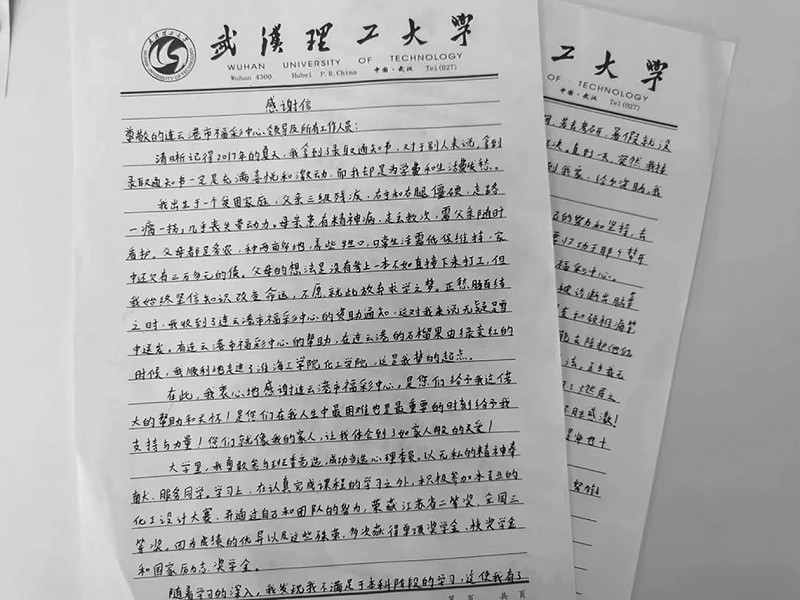 武汉理工大学
WUHAN UNIVERSITY OF TECHNOLOGY
Wuhan 4300 Hubei P.R.China 中国·武汉 Tel(027)
感谢信
尊敬的连云港市福彩中心领导及所有工作人员：
清晰记得2017年的夏天，我拿到了录取通知书，对于别人来说，拿到
录取通知书一定是充满喜悦和激动，而我却是为学费和生活费发愁。
我出生于一个贫困家庭，父亲三级残疾，右手和右腿僵硬，走路
一瘸一拐，几乎丧失劳动力。母亲患有精神病，走丢数次，需父亲随时
看护。父母都是务农，种两亩多地，养些牲口，日常生活需低保维持，家
中还欠有三万多元的债。父母的想法是没有考上一本不如直接下来打工，但
我始终坚信知识改变命运，不愿就此放弃求学之梦。正愁肠百结
之时，我收到了连云港市福彩中心的资助通知，这对我来说无疑是雪
中送炭。有连云港市福彩中心的帮助，在连云港的石榴果由绿变红的
时候，我顺利地走进了淮海工学院化工学院，这是我梦的起点。
在此，我衷心地感谢连云港市福彩中心，是您们给予我这偌
大的帮助和关怀！是您们在我人生中最困难也是最重要的时刻给予我
支持与力量！您们就像我的家人，让我体会到了如家人般的关爱！
大学里，我勇敢参与班委竞选，成功当选心理委员。以无私的精神奉
献、服务同学。学习上，在认真完成课程的学习之外，积极参加本专业的
化工设计大赛，并通过自己和团队的努力，荣获江苏省二等奖、全国三
等奖。因为成绩的优异以及这些殊荣，多次获得单项奖学金、校奖学金
和国家励志奖学金。
随着学习的深入，我发现我不满足于本科阶段的学习，这使我有了
第 页 共 页
工大学
OF TECHNOLOGY
中国·武汉 Tel(027)
若去考研，暑假就没
决。直到一天，突然我接
到我家，给予资助。我
的努力和坚持，去
要归功于那个梦开
福彩中心。
被诊断出脑
能去陪护他们